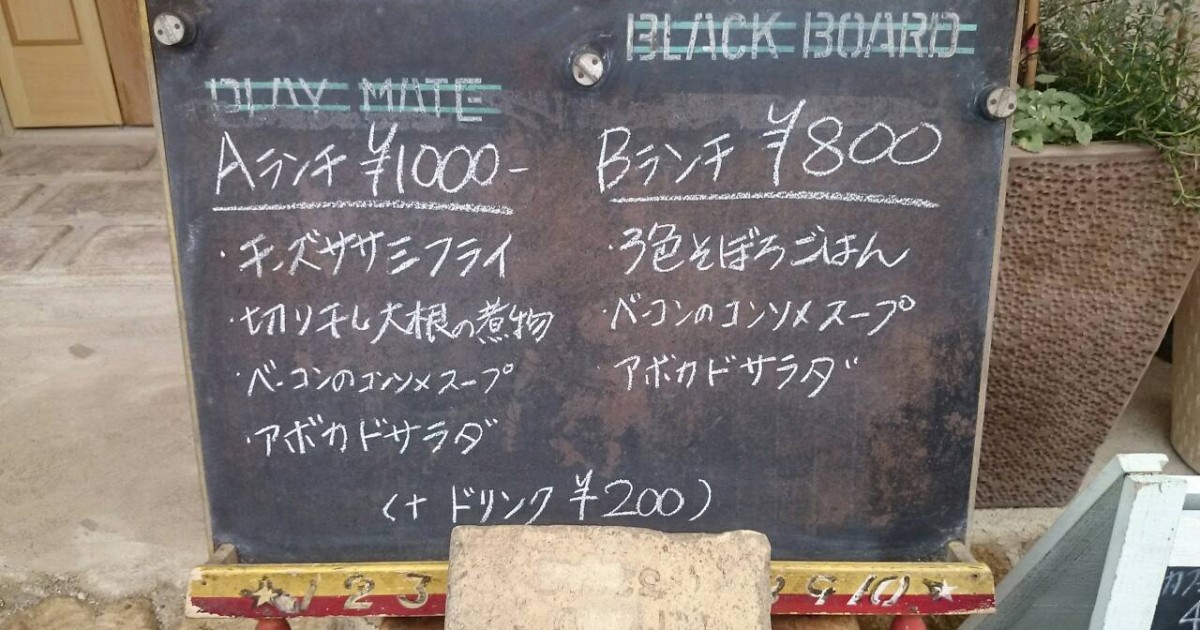 BLACK BOARD
PLAY MATE
Aランチ ¥1000-
・チーズササミフライ
・切り干し大根の煮物
・ベーコンのコンソメスープ
・アボカドサラダ
Bランチ ¥800
・3色そぼろごはん
・ベーコンのコンソメスープ
・アボカドサラダ
(+ ドリンク ¥200)
1 2 3
9 10